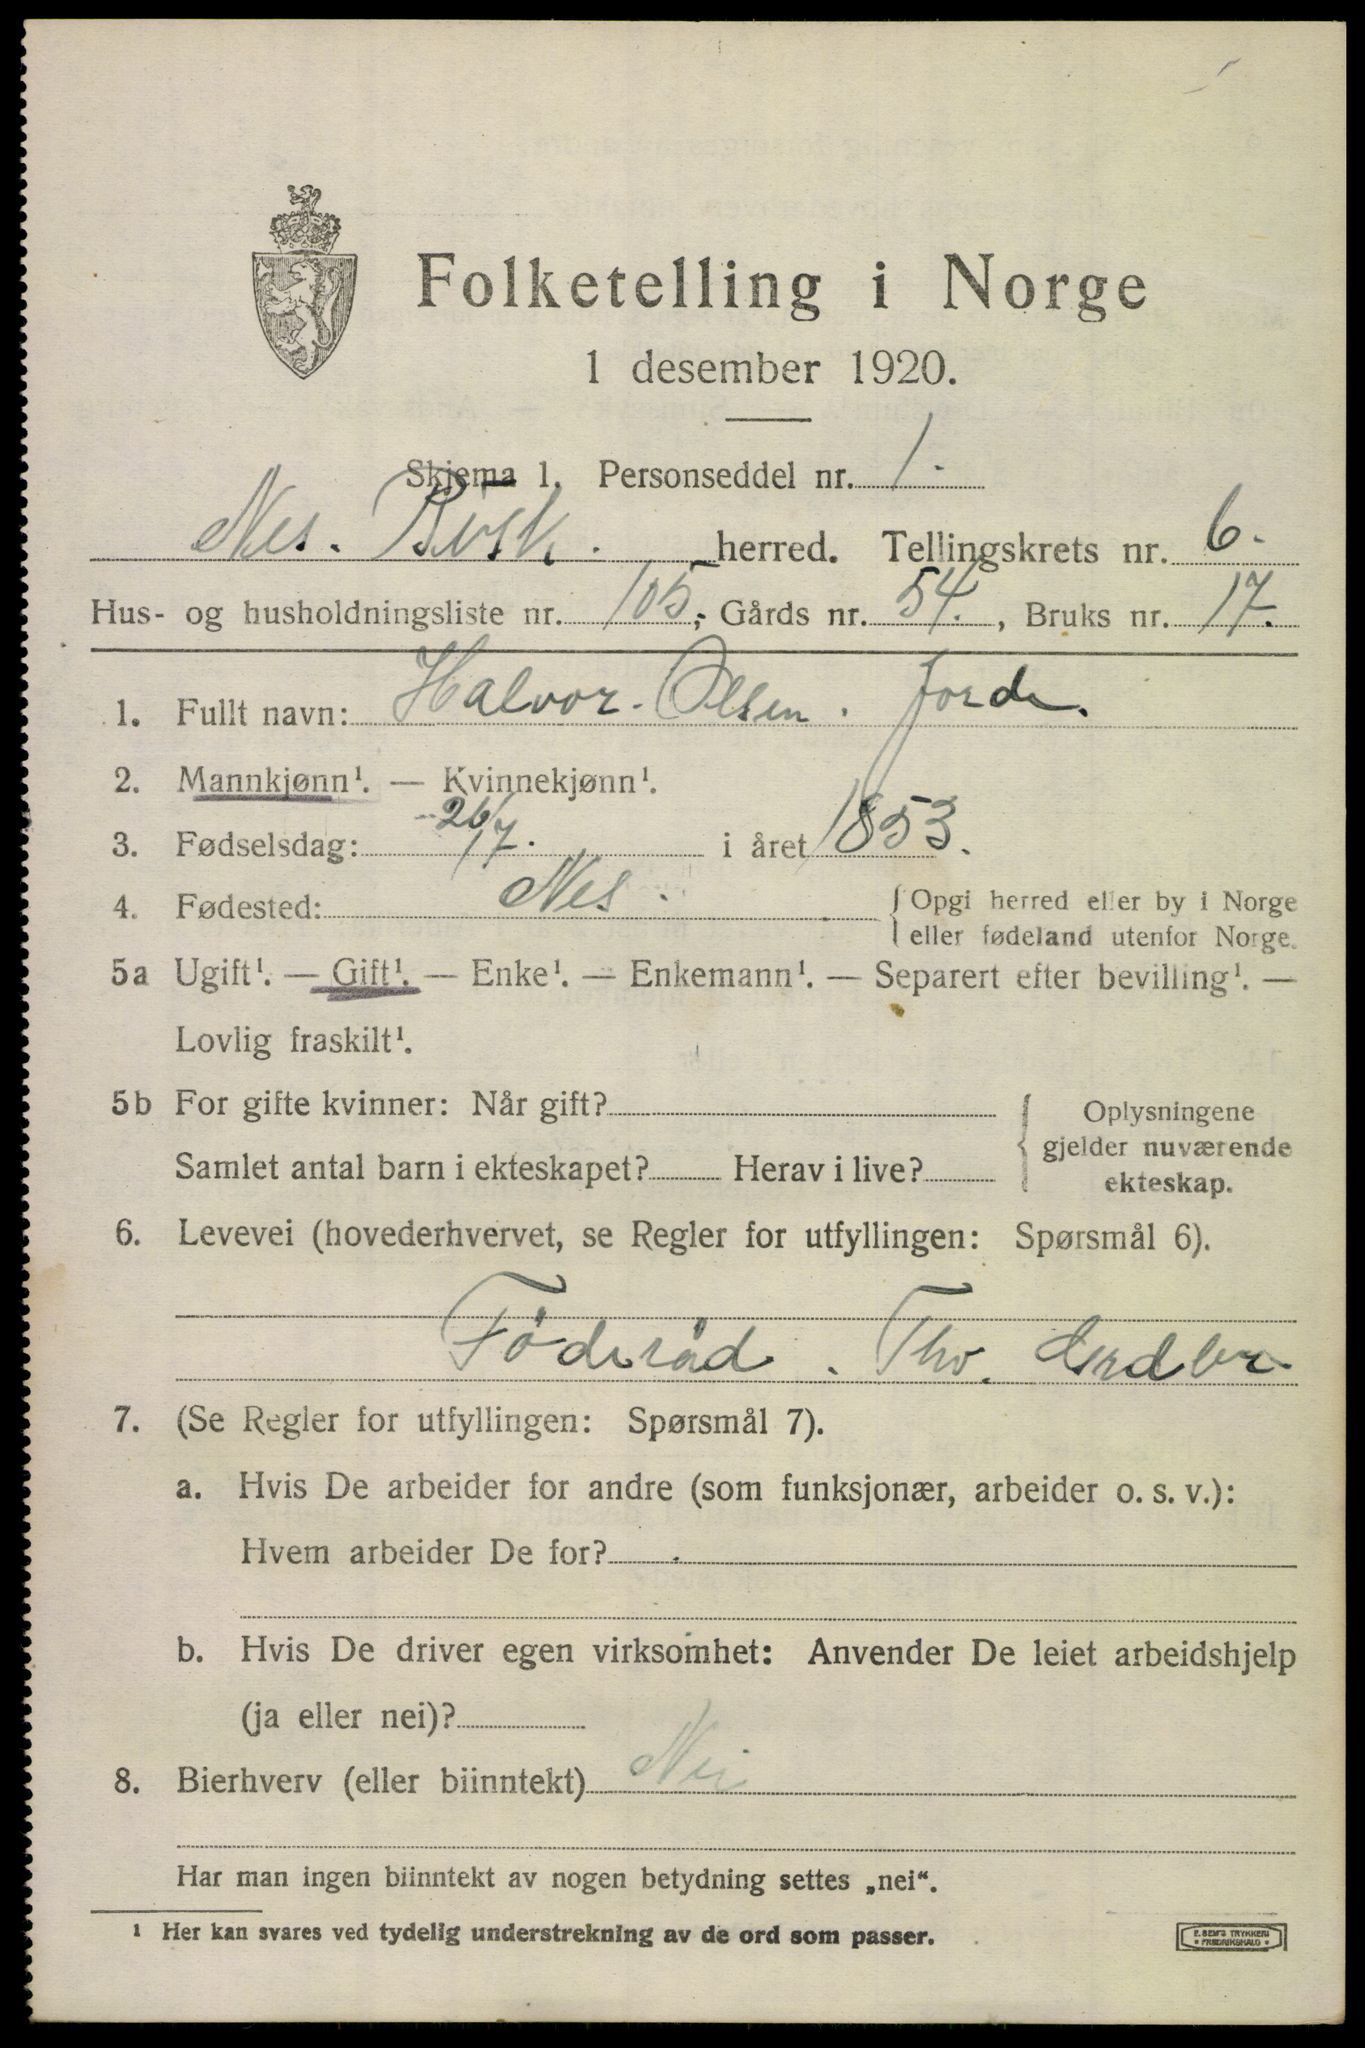 Folketelling i Norge
1 desember 1920.
Skjema 1. Personseddel nr. 1.
Nes. Busk. herred. Tellingskrets nr. 6.
Hus- og husholdningsliste nr. 105; Gårds nr. 54., Bruks nr. 17.
1. Fullt navn: Halvor Olsen. Jorde.
2. Mannkjønn¹. — Kvinnekjønn¹.
3. Fødselsdag: 26/7. i året 1853.
4. Fødested: Nes. { Opgi herred eller by i Norge
eller fødeland utenfor Norge.
5a Ugift¹. — Gift¹. — Enke¹. — Enkemann¹. — Separert efter bevilling¹. —
Lovlig fraskilt¹.
5b For gifte kvinner: Når gift? { Oplysningene
gjelder nuværende
Samlet antal barn i ekteskapet? Herav i live? ekteskap.
6. Levevei (hovederhvervet, se Regler for utfyllingen: Spørsmål 6).
Föderåd. Thv.
7. (Se Regler for utfyllingen: Spørsmål 7).
a. Hvis De arbeider for andre (som funksjonær, arbeider o. s. v.):
Hvem arbeider De for?
b. Hvis De driver egen virksomhet: Anvender De leiet arbeidshjelp
(ja eller nei)?
8. Bierhverv (eller biinntekt) Nei
Har man ingen biinntekt av nogen betydning settes „nei“.
¹ Her kan svares ved tydelig understrekning av de ord som passer.
E. SEM'S TRYKKERI
FREDRIKSHALD